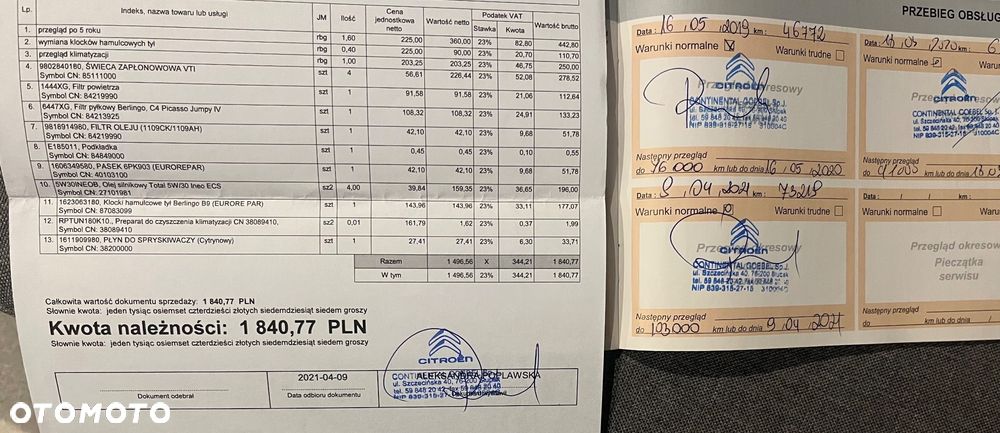 Lp.
Indeks, nazwa towaru lub usługi
JM
Ilość
Cena jednostkowa netto
Wartość netto
Podatek VAT
Stawka
Kwota
Wartość brutto
1. przegląd po 5 roku rbg 1,60 225,00 360,00 23% 82,80 442,80
2. wymiana klocków hamulcowych tył rbg 0,40 225,00 90,00 23% 20,70 110,70
3. przegląd klimatyzacji rbg 1,00 203,25 203,25 23% 46,75 250,00
4. 9802840180, ŚWIECA ZAPŁONOWWA VTI szt 4 56,61 226,44 23% 52,08 278,52
Symbol CN: 85111000
5. 1444XG, Filtr powietrza szt 1 91,58 91,58 23% 21,06 112,64
Symbol CN: 84219990
6. 6447XG, Filtr pyłkowy Berlingo, C4 Picasso Jumpy IV szt 1 108,32 108,32 23% 24,91 133,23
Symbol CN: 84213925
7. 9818914980, FILTR OLEJU (1109CK/1109AH) szt 1 42,10 42,10 23% 9,68 51,78
Symbol CN: 84219990
8. E185011, Podkładka szt 1 0,45 0,45 23% 0,10 0,55
Symbol CN: 84849000
9. 1606349580, PASEK 6PK903 (EUROREPAR) szt 1 42,10 42,10 23% 9,68 51,78
Symbol CN: 40103100
10. 5W30INEOB, Olej silnikowy Total 5W/30 Ineo ECS sz2 4,00 39,84 159,35 23% 36,65 196,00
Symbol CN: 27101981
11. 1623063180, Klocki hamulcowe tył Berlingo B9 (EURORE PAR) szt 1 143,96 143,96 23% 33,11 177,07
Symbol CN: 87083099
12. RPTUN180K10., Preparat do czyszczenia klimatyzacji CN 38089410, sz2 0,01 161,79 1,62 23% 0,37 1,99
Symbol CN: 38089410
13. 1611909980, PŁYN DO SPRYSKIWACZY (Cytrynowy) szt 1 27,41 27,41 23% 6,30 33,71
Symbol CN: 38200000
Razem 1 496,56 X 344,21 1 840,77
W tym 1 496,56 23% 344,21 1 840,77
Całkowita wartość dokumentu sprzedaży: 1 840,77 PLN
Słownie kwota: jeden tysiąc osiemset czterdzieści złotych siedemdziesiąt siedem groszy
Kwota należności: 1 840,77 PLN
Słownie kwota: jeden tysiąc osiemset czterdzieści złotych siedemdziesiąt siedem groszy
CITROËN
2021-04-09
ALEKSANDRA POPŁAWSKA
ul. Szczecińska 40, 76-200
Dokument odebrał
Data odbioru dokumentu
OTOMOTO
PRZEBIEG OBSŁUG
Data: 16,05,2019 km: 46772
Warunki normalne
Warunki trudne
CITROËN
CONTINENTAL GOEBEL Sp.J.
ul. Szczecińska 40, 76-200 Słupsk
NIP 839-315-27-15 310004C
Następny przegląd
do 76000 km lub do dnia 16,05,2020
Data:
2020 km:
Warunki normalne
CITROËN
CONTINENTAL GOEBEL
ul. Szczecińska 40, 76-200
Następny przegląd
do 91000 km lub do dnia
9,04,2021 km: 73219
Warunki normalne
Warunki trudne
CITROËN
CONTINENTAL GOEBEL Sp.J.
ul. Szczecińska 40, 76-200 Słupsk
NIP 839-315-27-15 310004C
Następny przegląd
do 103000 km lub do dnia 9,04,2021
Data: / / km:
Warunki normalne
Przegląd okresow
Pieczątka
serwisu
Następny przegląd
do km lub do dnia /